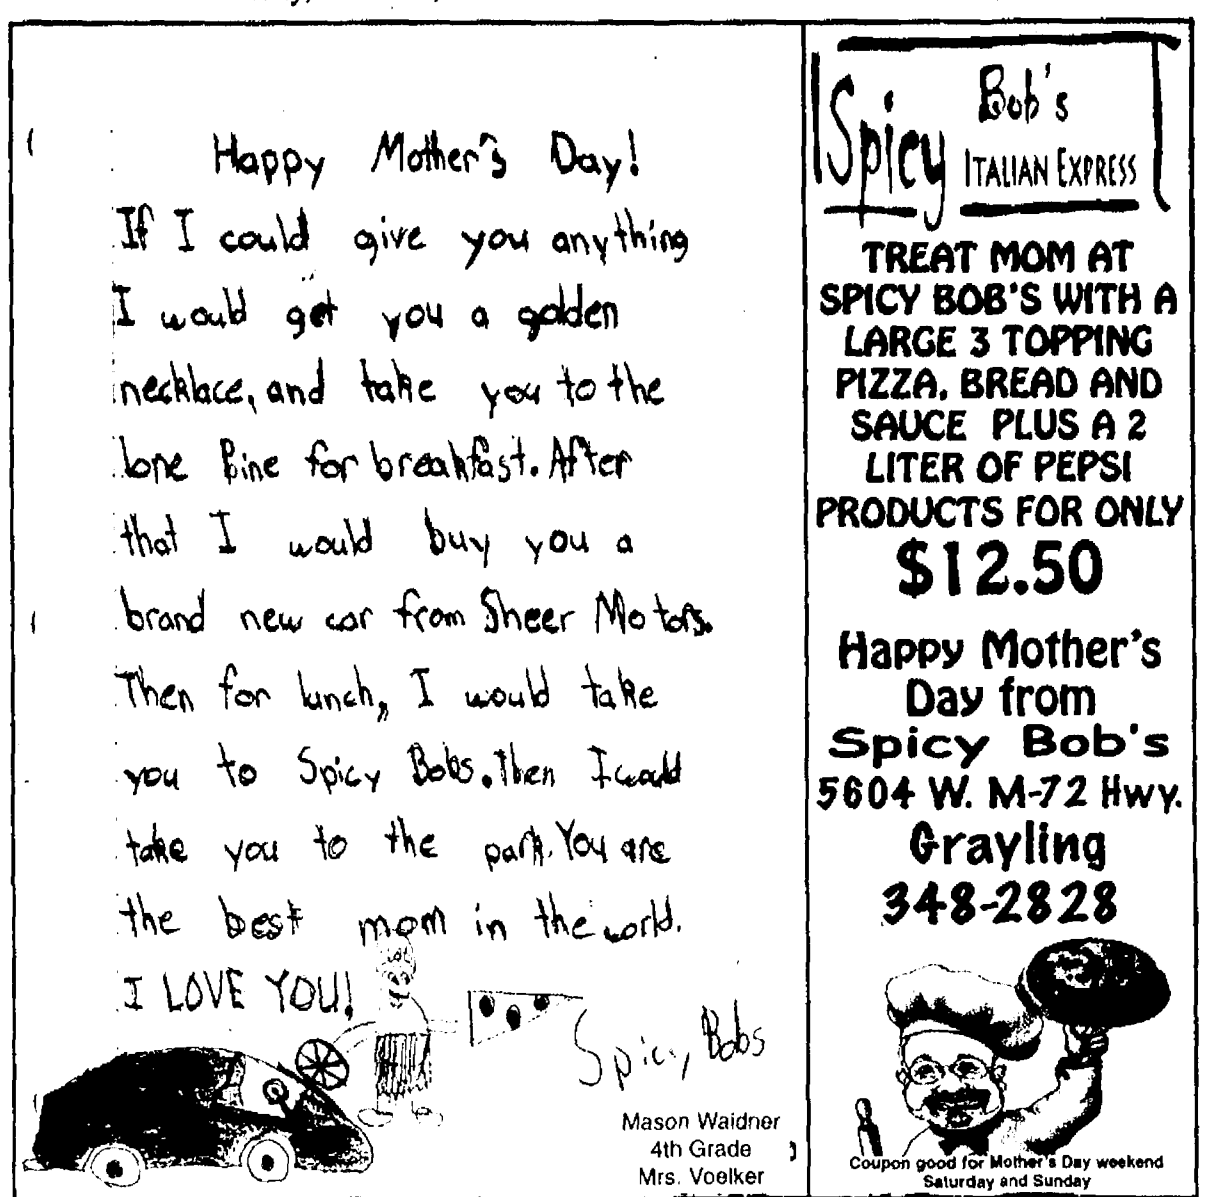 Happy Mother's Day!
If I could give you anything
I would get you a golden
necklace, and take you to the
lone Pine for breakfast. After
that I would buy you a
brand new car from Sheer Motors.
Then for lunch, I would take
you to Spicy Bobs. Then I would
take you to the park. You are
the best mom in the world.
I LOVE YOU!
Spicy Bobs
Mason Waidner
4th Grade
Mrs. Voelker
Spicy Bob's
ITALIAN EXPRESS
TREAT MOM AT
SPICY BOB'S WITH A
LARGE 3 TOPPING
PIZZA, BREAD AND
SAUCE PLUS A 2
LITER OF PEPSI
PRODUCTS FOR ONLY
$12.50
Happy Mother's
Day from
Spicy Bob's
5604 W. M-72 Hwy.
Grayling
348-2828
Coupon good for Mother's Day weekend
Saturday and Sunday